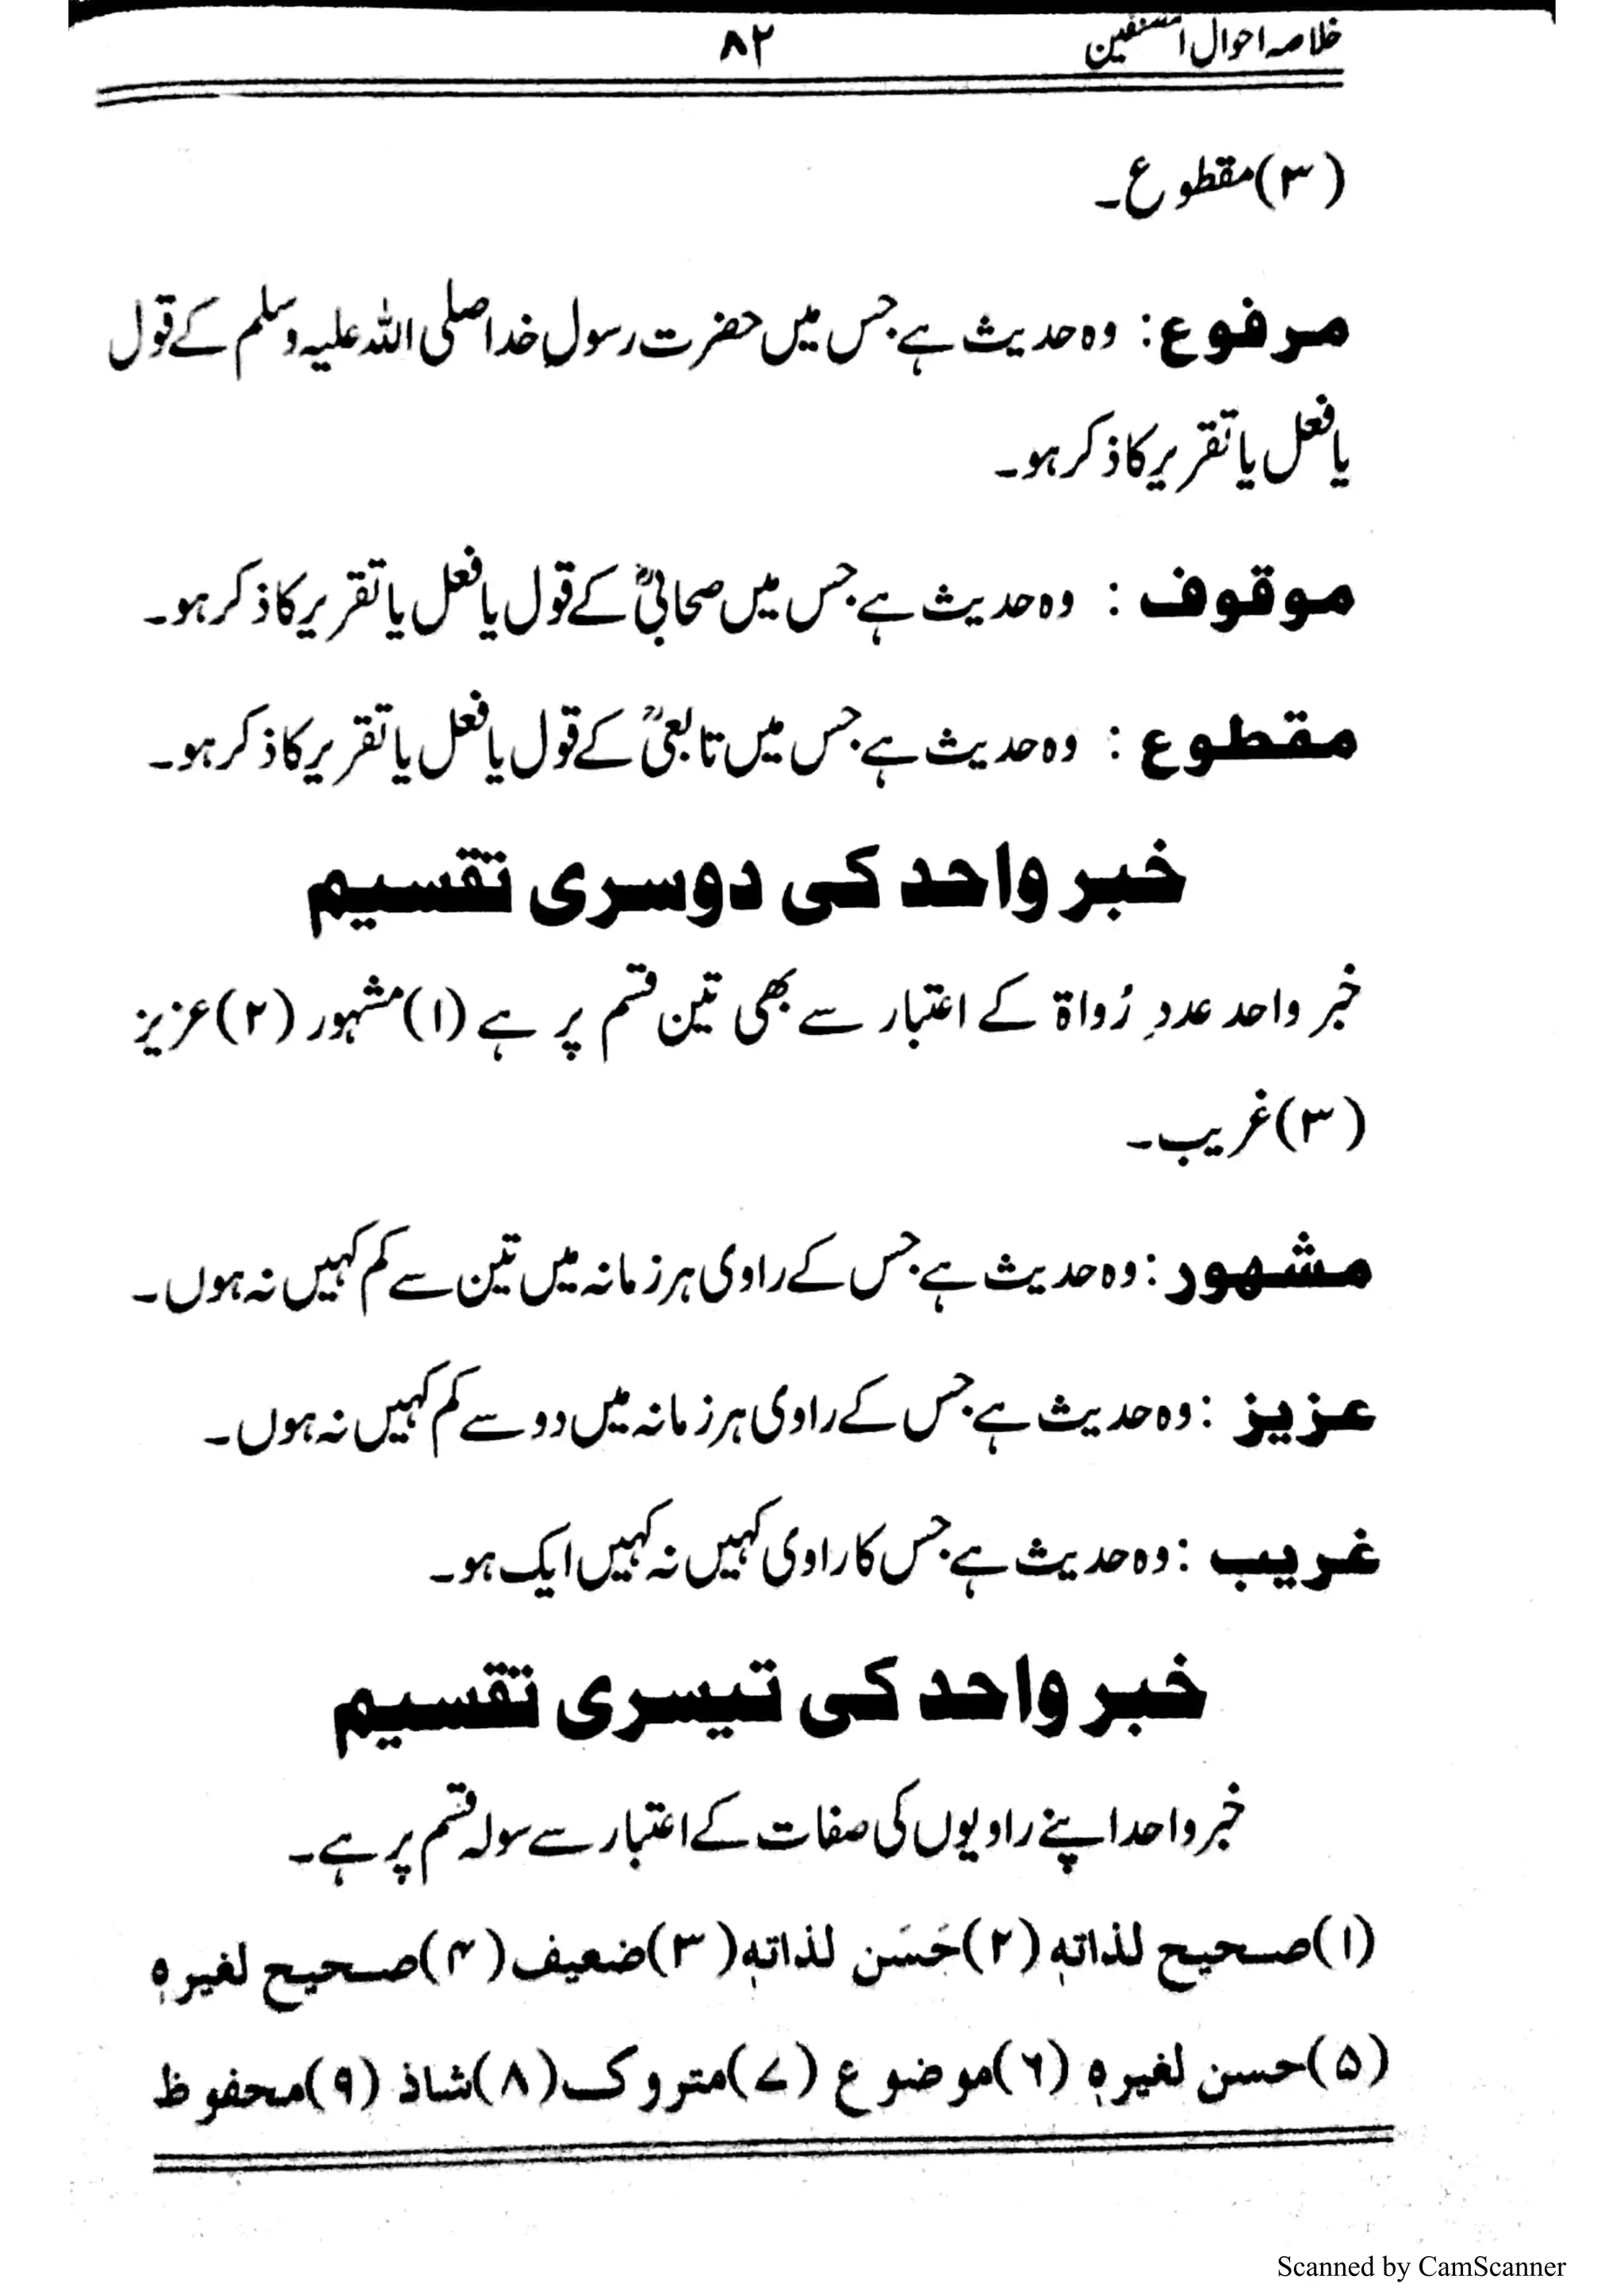 خلاصہ احوال المصنفین ۸۲
(۳)مقطوع۔
مرفوع: وہ حدیث ہے جس میں حضرت رسولِ خدا صلی اللہ علیہ وسلم کے قول
یا فعل یا تقریر کا ذکر ہو۔
موقوف: وہ حدیث ہے جس میں صحابیؓ کے قول یا فعل یا تقریر کا ذکر ہو۔
مقطوع: وہ حدیث ہے جس میں تابعیؒ کے قول یا فعل یا تقریر کا ذکر ہو۔
خبر واحد کی دوسری تقسیم
خبر واحد عددِ رُواة کے اعتبار سے بھی تین قسم پر ہے (۱)مشہور (۲)عزیز
(۳)غریب۔
مشہور: وہ حدیث ہے جس کے راوی ہر زمانہ میں تین سے کم کہیں نہ ہوں۔
عزیز: وہ حدیث ہے جس کے راوی ہر زمانہ میں دو سے کم کہیں نہ ہوں۔
غریب: وہ حدیث ہے جس کا راوی کہیں نہ کہیں ایک ہو۔
خبر واحد کی تیسری تقسیم
خبر واحد اپنے راویوں کی صفات کے اعتبار سے سولہ قسم پر ہے۔
(۱)صحیح لذاتہٖ (۲)حَسَن لذاتہٖ (۳)ضعیف (۴)صحیح لغیرہٖ
(۵)حسن لغیرہٖ (۶)موضوع (۷)متروک (۸)شاذ (۹)محفوظ
Scanned by CamScanner